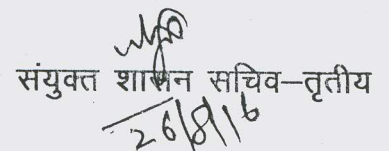 संयुक्त शासन सचिव–तृतीय
26/8/16